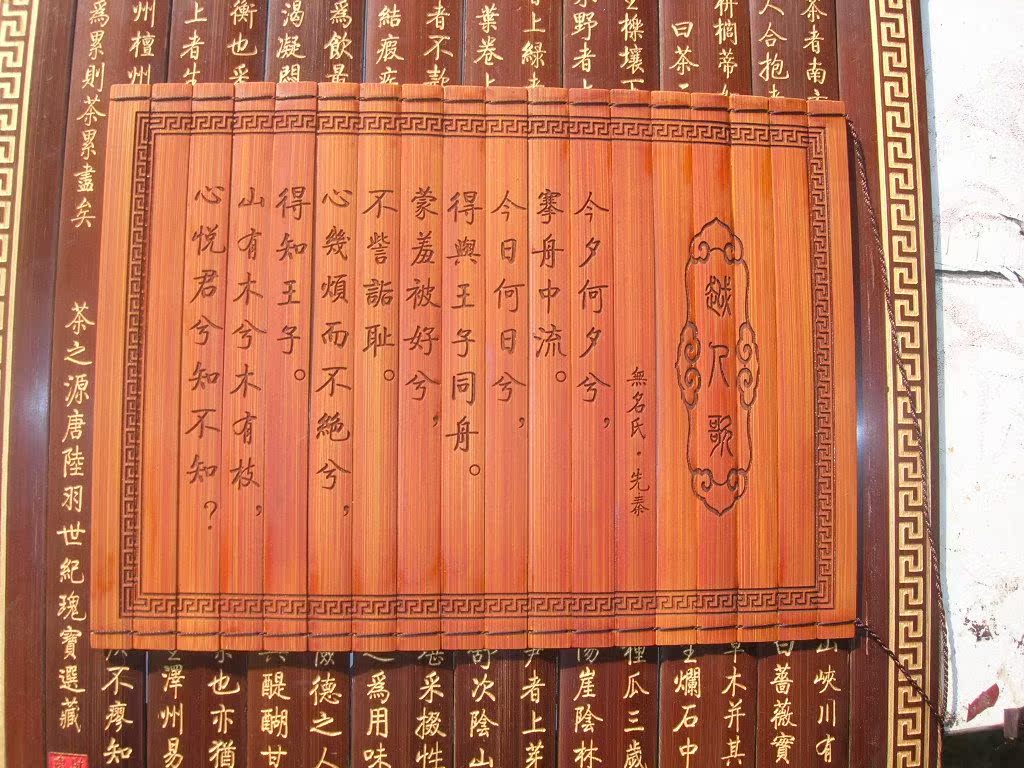 越人歌
無名氏·先秦
今夕何夕兮，
搴舟中流。
今日何日兮，
得與王子同舟。
蒙羞被好兮，
不訾詬耻。
心幾煩而不絕兮，
得知王子。
山有木兮木有枝，
心悅君兮知不知？
茶者南
人合抱
栟櫚蒂
曰茶
櫟壤
野者上
者上綠
葉卷上
者不
結瘕疾
爲飲最
渴凝悶
衡也采
上者生
州檀州
爲累則茶累盡矣
茶之源唐陸羽世紀瑰寶選藏
山峽川有
曰薔薇實
草木并其
生爛石中
種瓜三歲
陽崖陰林
者上芽
舒次陰山
堪采掇性
之爲用味
儉德之人
醍醐甘
也亦猶
澤州易
不瘳知